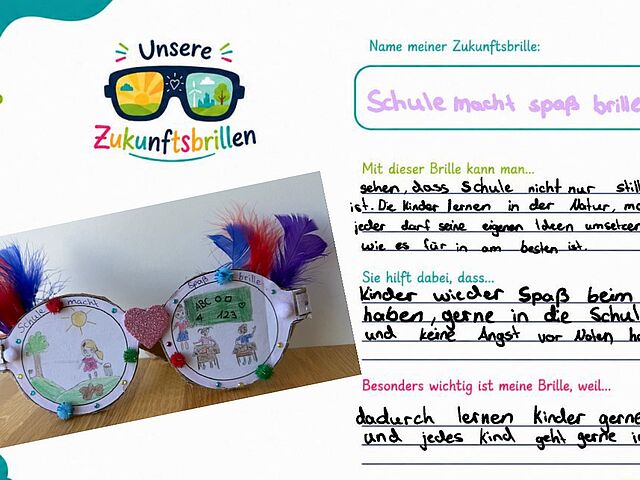 Unsere
Zukunftsbrillen
Name meiner Zukunftsbrille:
Schule macht spaß brille
Mit dieser Brille kann man...
sehen, dass Schule nicht nur still
ist. Die Kinder lernen in der Natur,
jeder darf seine eigenen Ideen umsetzen
wie es für in am besten ist.
Sie hilft dabei, dass...
Kinder wieder Spaß beim
haben, gerne in die Schul
und keine Angst vor Noten ha
Besonders wichtig ist meine Brille, weil...
dadurch lernen Kinder gerne
und jedes Kind geht gerne in
Schule macht
Spaß brille
ABC
4 123